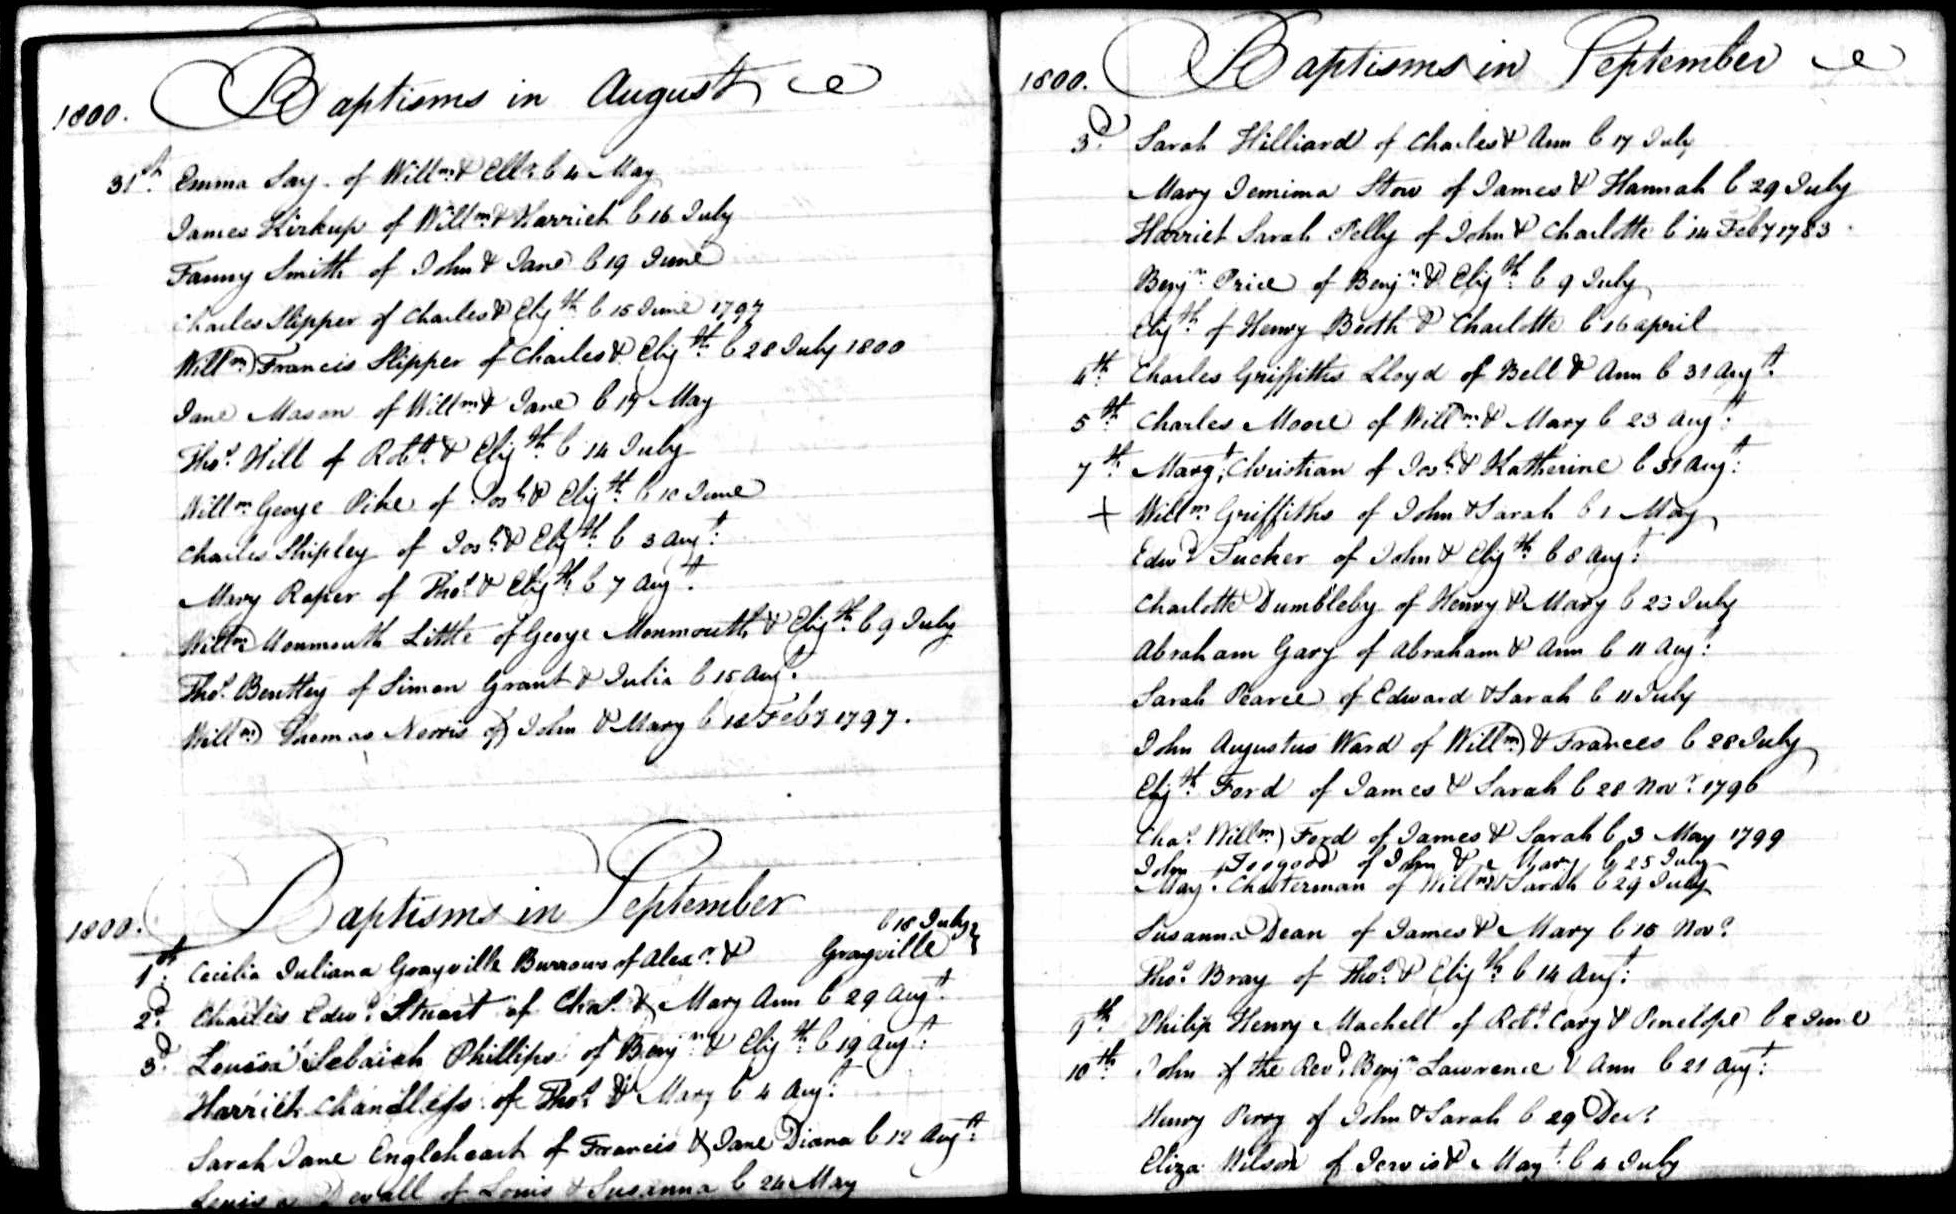 Baptisms in August
1800.
31st. Emma Say of Willm. & Ellr. b 4 May
James Kirkup of Willm. & Harriet b 16 July
Fanny Smith of John & Jane b 19 June
Charles Slipper of Charles & Elizth. b 15 June 1797
Willm. Francis Slipper of Charles & Elizth. b 28 July 1800
Jane Mason of Willm. & Jane b 17 May
Thos. Hill of Robt. & Elizth. b 14 July
Willm. George Pike of Josh. & Elizth. b 10 June
Charles Shipley of Josh. & Elizth. b 3 Augt.
Mary Roper of Thos. & Elizth. b 7 Augt.
Willm. Monmouth Little of George Monmouth & Elizth. b 9 July
Thos. Bentley of Simon Grant & Julia b 15 Augt.
Willm. Thomas Norris of John & Mary b 12 Feby 1797.
Baptisms in September
1800.
b 18 July
1st. Cecilia Juliana Grayville Burrows of Alexr. & Grayville
2d. Charles Edwd. Stuart of Chas. & Mary Ann b 29 Augt.
3d. Louisa Phillips of Benjn. & Elizth. b 19 Augt.
Harriet Chandless of Thos. & Mary b 4 Augt.
Sarah Jane Engleheart of Francis & Jane Diana b 12 Augt.
of Louis & Susanna b 24 May
1800. Baptisms in September
3d. Sarah Hilliard of Charles & Ann b 17 July
Mary Jemima Stow of James & Hannah b 29 July
Harriet Sarah Pelly of John & Charlotte b 14 Feby 1783
Benjn. Price of Benjn. & Elizth. b 9 July
Elizth. of Henry Booth & Charlotte b 16 april
4th. Charles Griffiths Lloyd of Bell & Ann b 31 Augt.
5th. Charles Moore of Willm. & Mary b 23 Augt.
7th. Margt. Christian of Josh. & Katherine b 31 Augt.
+ Willm. Griffiths of John & Sarah b 1 May
Edwd. Tucker of John & Elizth. b 8 Augt.
Charlotte Dumbleby of Henry & Mary b 23 July
Abraham Gary of Abraham & Ann b 11 Augt.
Sarah Pearce of Edward & Sarah b 11 July
John Augustus Ward of Willm. & Frances b 28 July
Elizth. Ford of James & Sarah b 28 Novr. 1796
Chas. Willm. Ford of James & Sarah b 3 May 1799
John Toogood of John & Mary b 25 July
Mary Chesterman of Willm. & Sarah b 29 July
Susanna Dean of James & Mary b 15 Novr.
Thos. Bray of Thos. & Elizth. b 14 Augt.
9th. Philip Henry Machell of Robt. Cary & Penelope b 2 June
10th. John of the Revd. Benjn. Lawrence & Ann b 21 Augt.
Henry Perry of John & Sarah b 29 Decr.
Eliza Wilson of Jervis & Mayt. b 4 July